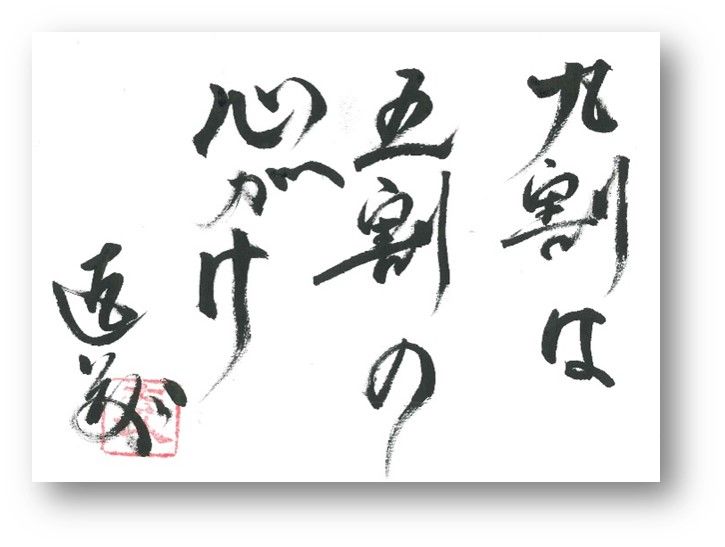 九割は
五割の
心がけ